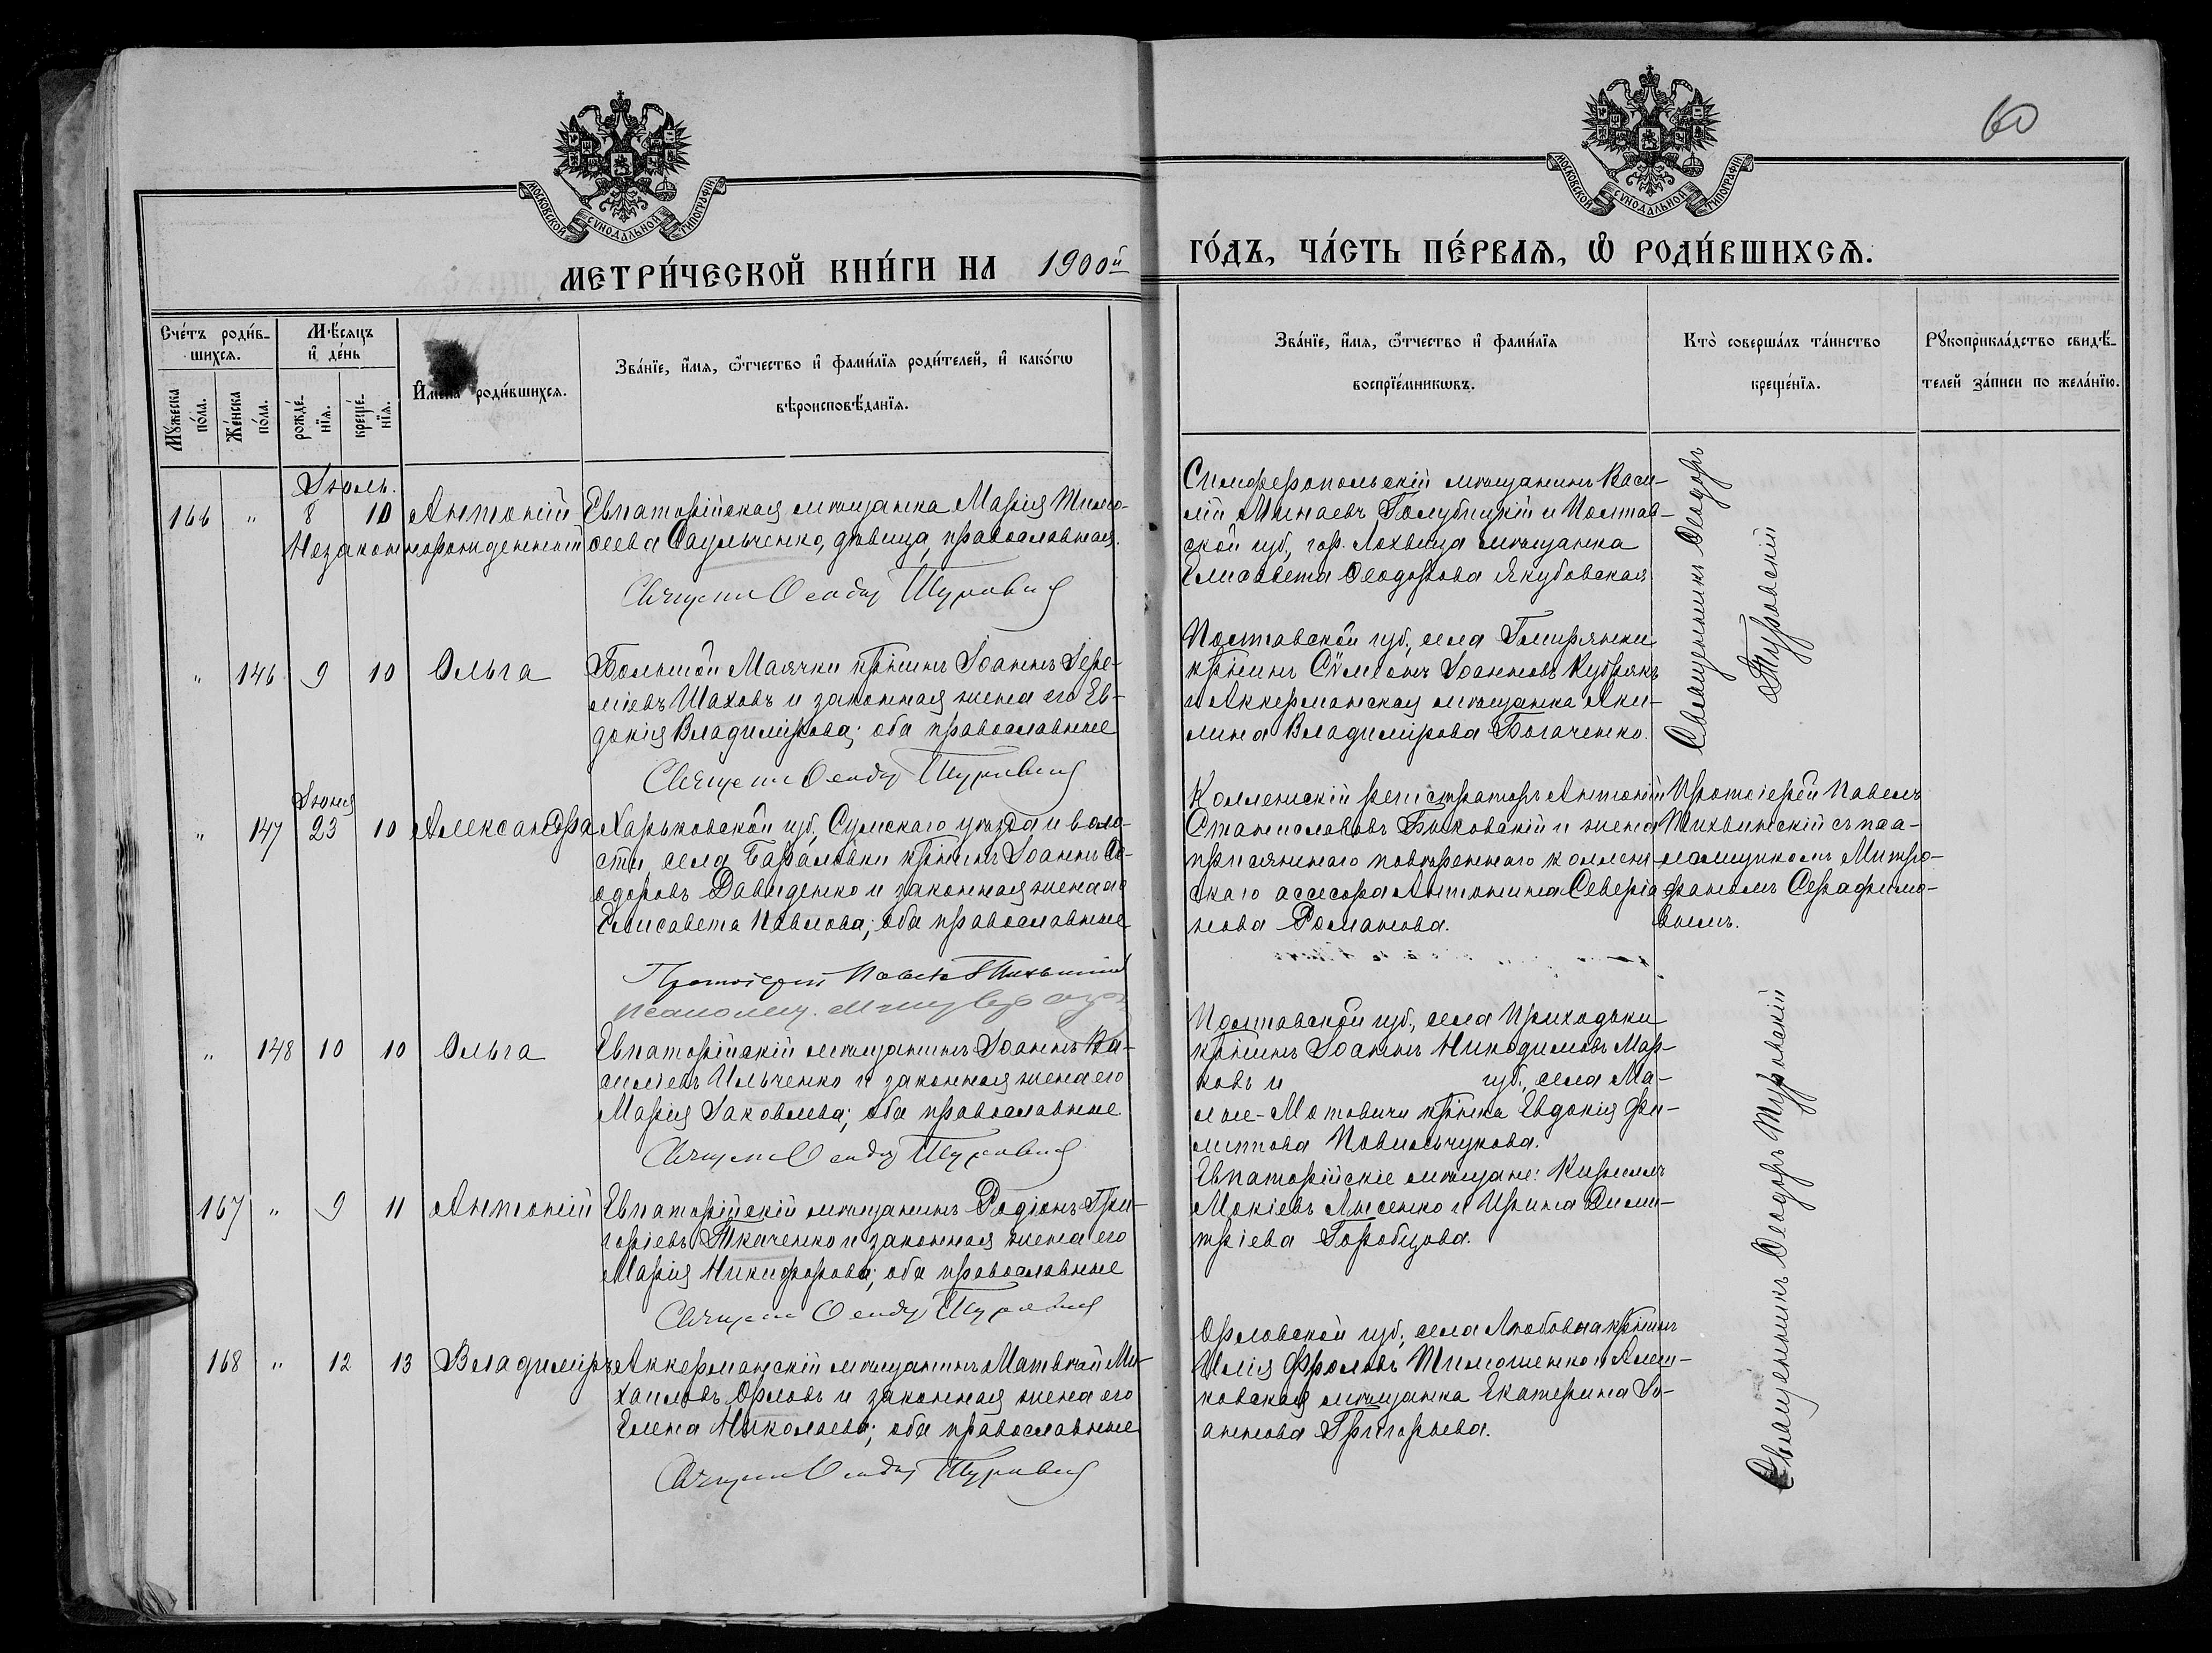 60
МОСКОВСКОЙ СѴНОДАЛЬНОЙ ТИПОГРАФІИ
МОСКОВСКОЙ СѴНОДАЛЬНОЙ ТИПОГРАФІИ
МЕТРИ́ЧЕСКОЙ КНИ́ГИ НА 1900й
ГО́ДЪ, ЧА́СТЬ ПЕ́РВАѦ, Ѡ РОДИ́ВШИХСѦ.
Сче́тъ роди́в-
шихсѧ.
Мѣ́сѧцъ
и де́нь
Мꙋ́жеска
по́ла.
Же́нска
по́ла.
рожде́-
нїѧ.
креще́-
нїѧ.
Имена роди́вшихсѧ.
Зва́нїе, и́мѧ, ѻ́тчество и фами́лїѧ роди́телей, и како́гѡ
вѣроисповѣ́данїѧ.
Зва́нїе, и́мѧ, ѻ́тчество и фами́лїѧ
воспрїе́мникѡвъ.
Кто̀ соверша́лъ та́инство
креще́нїѧ.
Рꙋкоприкла́дство свидѣ́-
телей за́писи по жела́нїю.
Іюль.
166 " 8 10 Антоній
Незаконнорожденный
Евпаторійская мѣщанка Марія Тимо-
сеева Саульченко, дѣвица, православная.
Священ Ѳеодор Туровскій
Симферопольскій мѣщанинъ Васи-
лій Минаевъ Голубицкій и Полтав-
ской губ., гор. Лохвица мѣщанка
Елисавета Ѳеодорова Якубовская
Священникъ Ѳеодоръ
Туровскій
" 146 9 10 Ольга
Большой Маячки кр҃нинъ Іоаннъ Іере-
міевъ Шаховъ и законная жена его Ев-
докія Владимірова; оба православные
Священ Ѳеодор Туровскій
Полтавской губ., села Гмирянки
кр҃нинъ Сѵмеонъ Іоанновъ Кубракъ
и Аккерманская мѣщанка Аки-
лина Владимірова Богаченко.
Іюня
" 147 23 10 Александра
Харьковской губ., Сумскаго уѣзда и воло-
сти, села Барановки кр҃нинъ Іоаннъ Ѳе-
одоровъ Давиденко и законная жена его
Елисавета Павлова; оба православные
Протоіерей Павелъ Тихвинскій
Коллежскій регистраторъ Антоній
Станиславовъ Быковскій и жена
присяжнаго повѣреннаго коллеж-
скаго ассесора Антонина Северіа-
нова Романова.
Протоіерей Павелъ
Тихвинскій съ пса-
ломщикомъ Митро-
фаномъ Серафимо-
вымъ.
" 148 10 10 Ольга
Евпаторійскій мѣщанинъ Іоаннъ Ва-
сильевъ Ильченко и законная жена его
Марія Іаковлева; оба православные
Священ Ѳеодор Туровскій
Полтавской губ., села Приходьки
кр҃нинъ Іоаннъ Никодимовъ Мар-
ковъ и губ., села Ма-
лые-Мотовичи кр҃нка Евдокія Фи-
липпова Повильчукова.
167 " 9 11 Антоній
Евпаторійскій мѣщанинъ Родіонъ Гри-
горіевъ Ткаченко и законная жена его
Марія Никифорова; оба православные
Священ Ѳеодор Туровскій
Евпаторійскіе мѣщане: Кириллъ
Мокіевъ Лысенко и Ирина Дими-
тріева Горобцова.
Священникъ Ѳеодоръ Туровскій
168 " 12 13 Владиміръ
Аккерманскій мѣщанинъ Матвѣй Ми-
хаиловъ Орловъ и законная жена его
Елена Николаева; оба православные
Священ Ѳеодор Туровскій
Орловской губ., села Любовна кр҃нинъ
Илія Фроловъ Тимошенко и Алеш-
ковская мѣщанка Екатерина Іо-
аннова Григорьева.